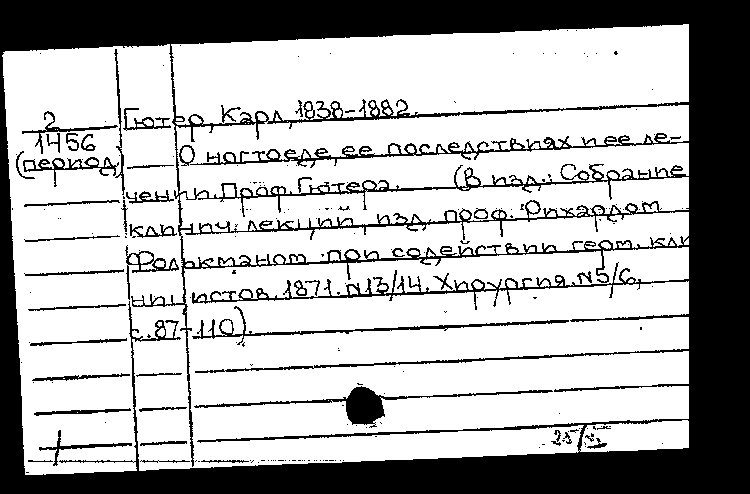 2
1456
(период)
Гютер, Карл, 1838-1882.
О ногтоеде, ее последствиях и ее ле-
чении. Проф. Гютера. (В изд.: Собрание
клинич. лекций, изд. проф. Рихардом
Фолькманом при содействии герм. кли
ницистов. 1871. N13/14. Хирургия. N5/6,
с. 87-110).